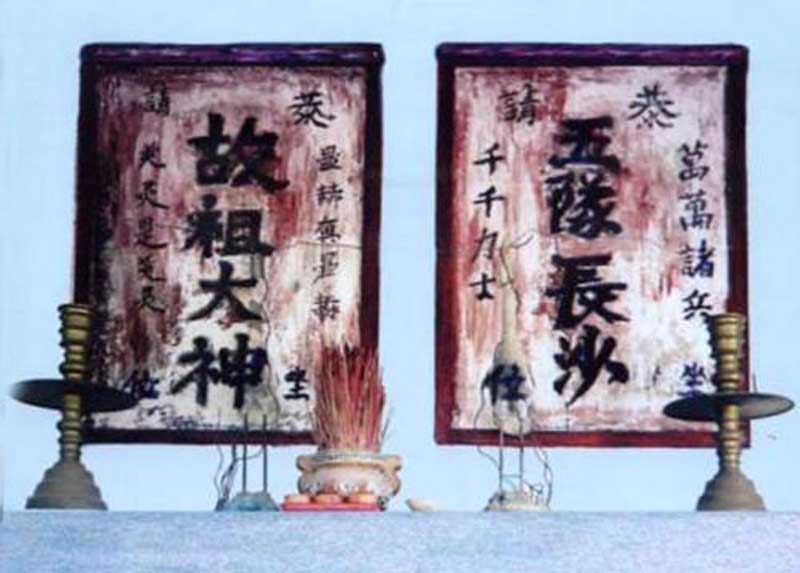 恭請
萬萬諸兵
五隊長沙
千千力士
坐位
恭請
故祖大神
坐位